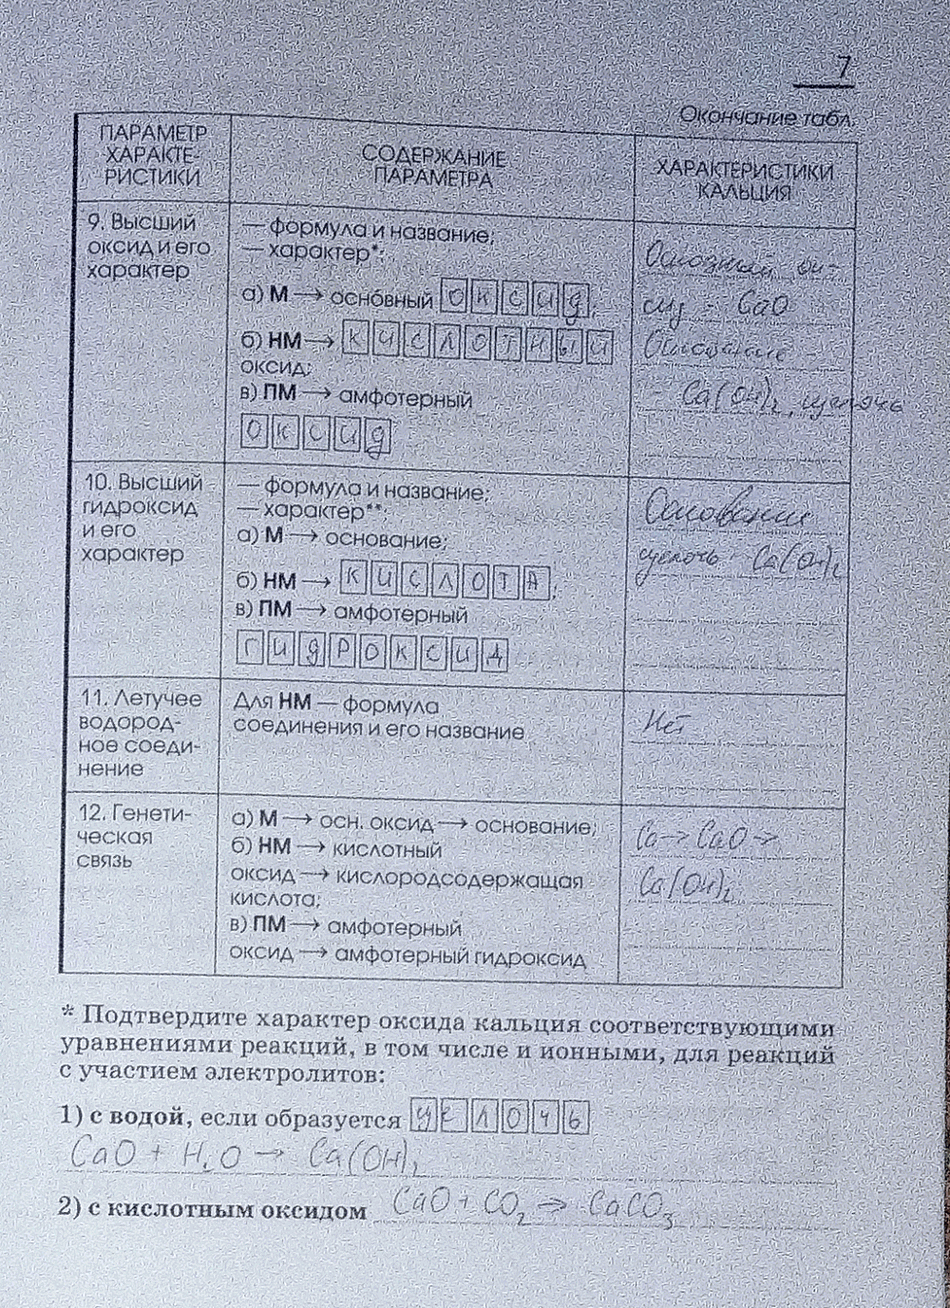 7
Окончание табл.
ПАРАМЕТР
ХАРАКТЕ-
РИСТИКИ
СОДЕРЖАНИЕ
ПАРАМЕТРА
ХАРАКТЕРИСТИКИ
КАЛЬЦИЯ
9. Высший
оксид и его
характер
— формула и название;
— характер*:
а) М → оснόвный оксид;
б) НМ → кислотный
оксид;
в) ПМ → амфотерный
оксид
Основный ок-
сид - CaO
Основание
- Ca(OH)₂, щелочь
10. Высший
гидроксид
и его
характер
— формула и название;
— характер**:
а) М → основание;
б) НМ → КИСЛОТА;
в) ПМ → амфотерный
ГИДРОКСИД
Основание
щелочь - Ca(OH)₂
11. Летучее
водород-
ное соеди-
нение
Для НМ — формула
соединения и его название
Нет
12. Генети-
ческая
связь
а) М → осн. оксид → основание;
б) НМ → кислотный
оксид → кислородсодержащая
кислота;
в) ПМ → амфотерный
оксид → амфотерный гидроксид
Ca → CaO →
Ca(OH)₂
* Подтвердите характер оксида кальция соответствующими
уравнениями реакций, в том числе и ионными, для реакций
с участием электролитов:
1) с водой, если образуется ЩЕЛОЧЬ
CaO + H₂O → Ca(OH)₂
2) с кислотным оксидом CaO + CO₂ → CaCO₃